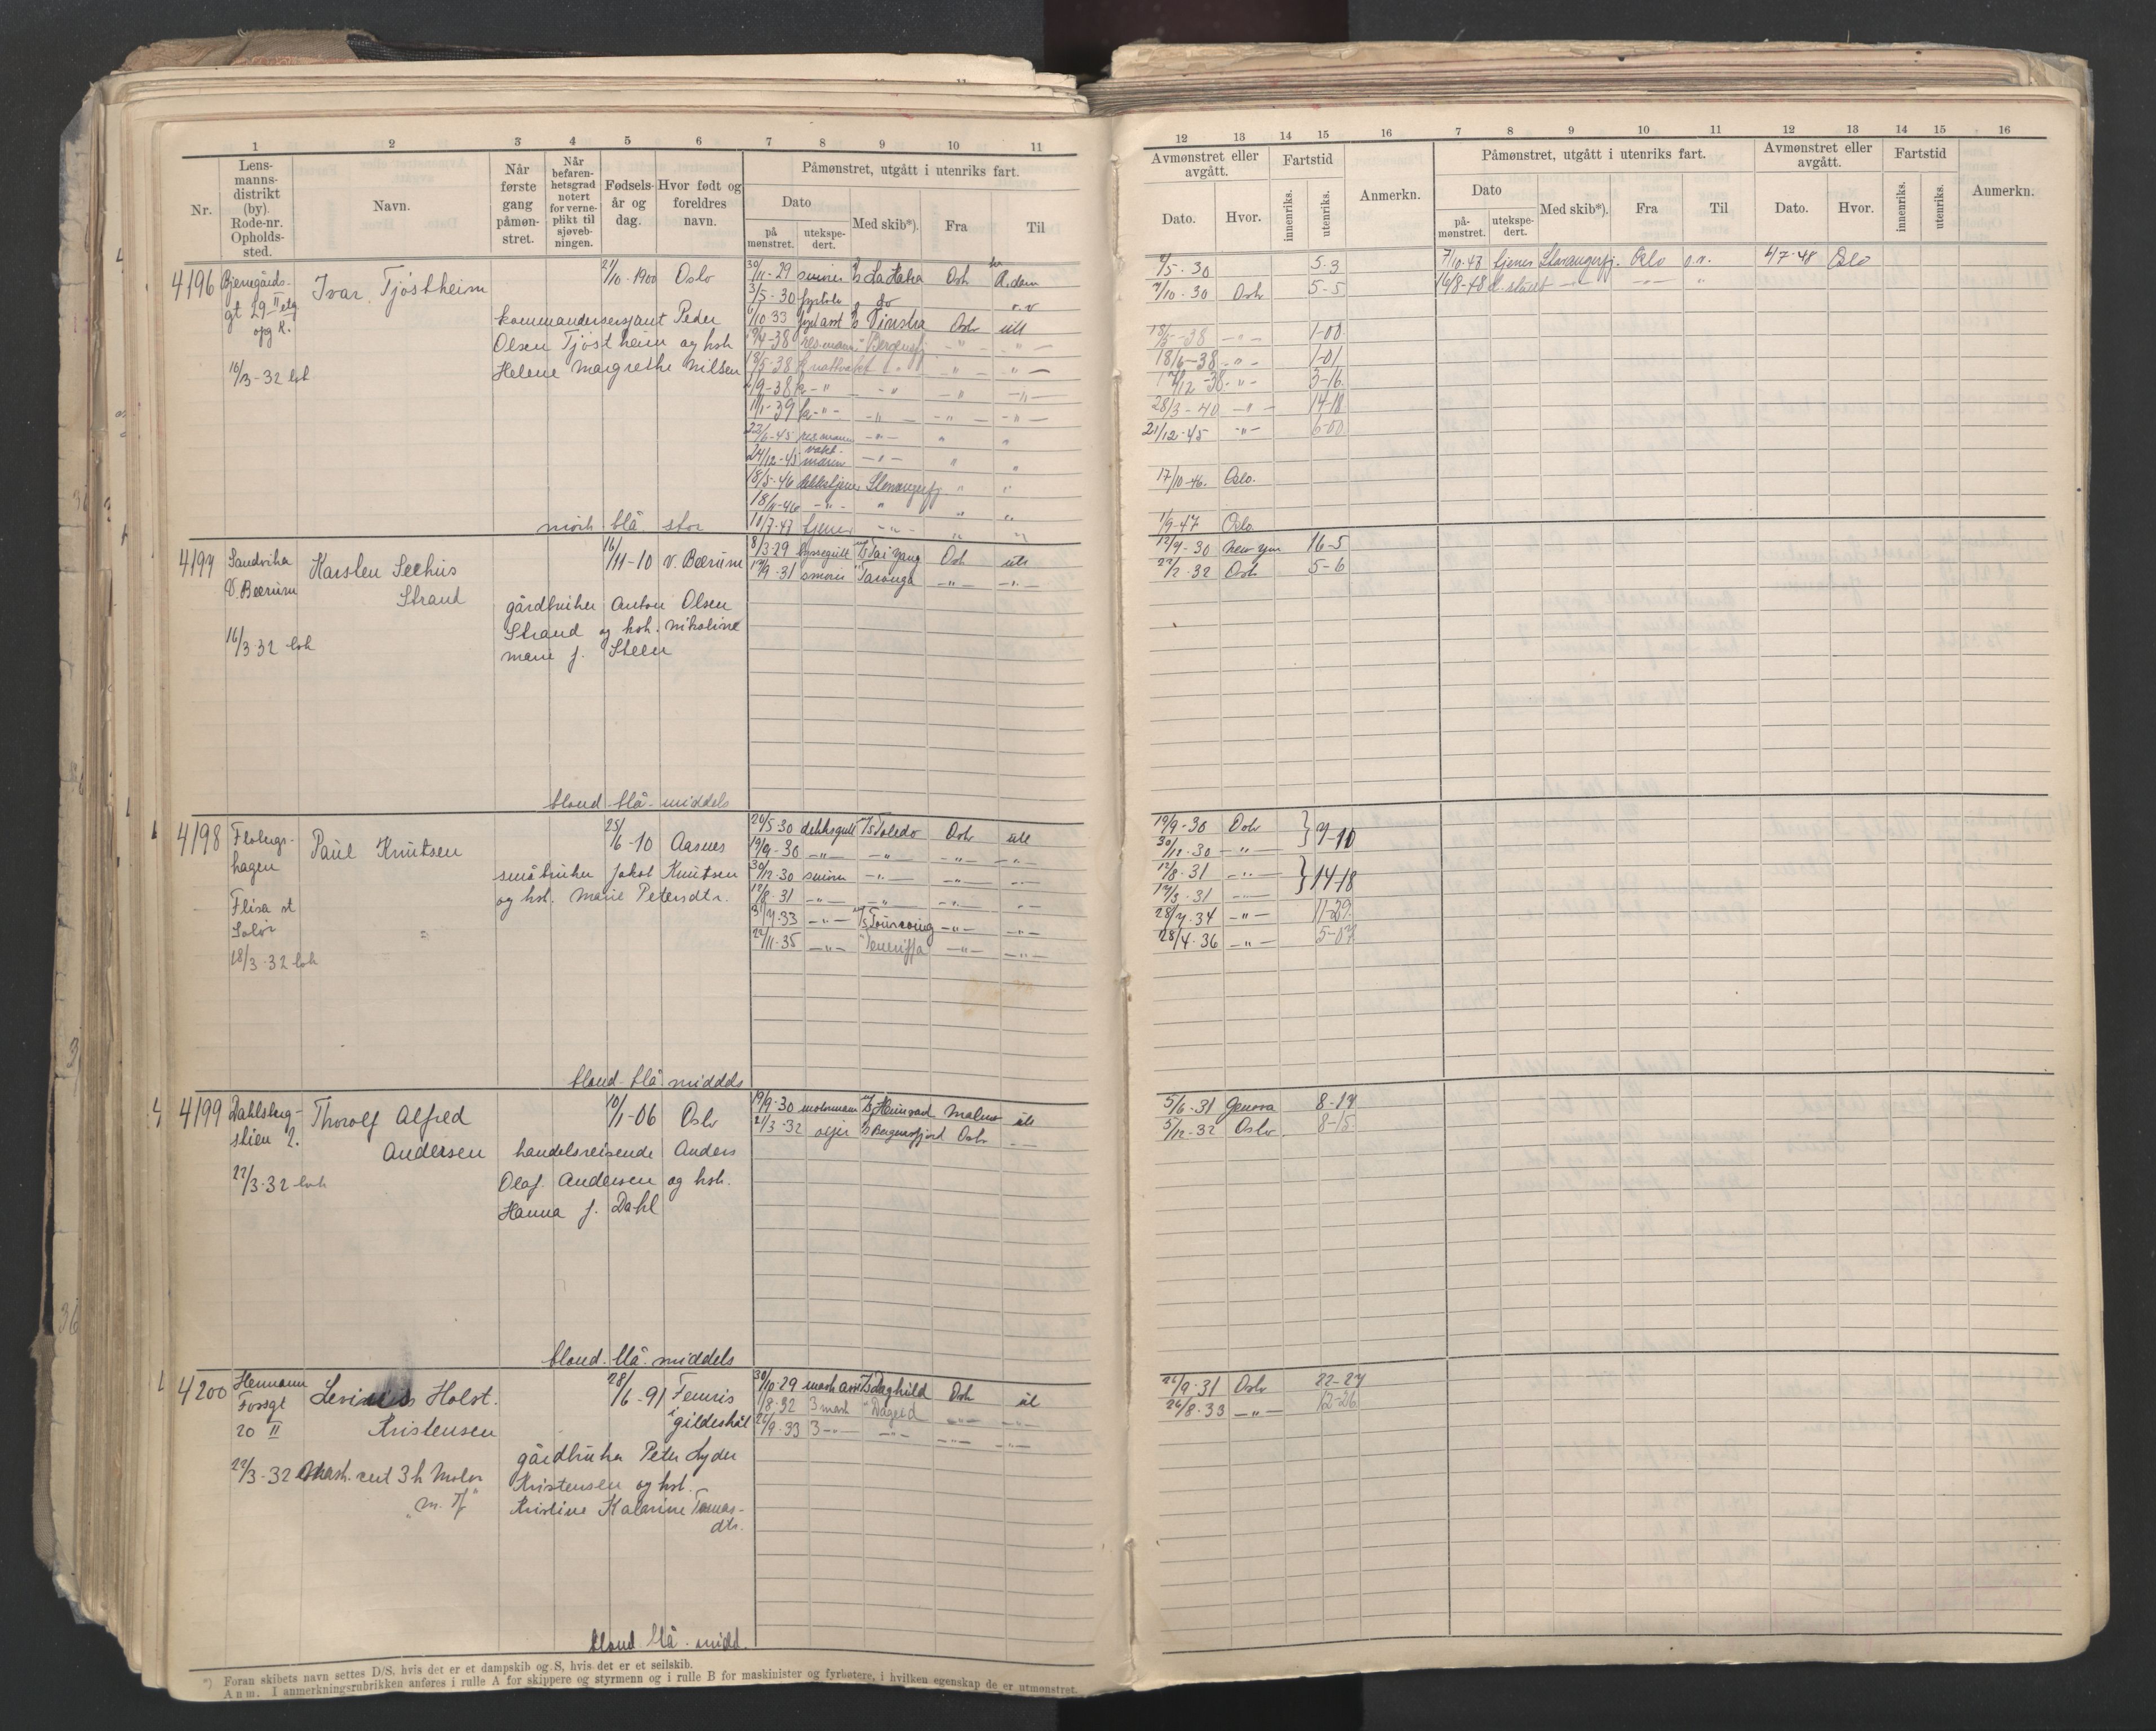 1 2 3 4 5 6 7 8 9 10 11
Nr. Lens-manns-distrikt (by). Rode-nr. Opholds-sted. Navn. Når første gang påmøn-stret. Når befaren-hetsgrad notert for verne-plikt til sjøveb-ningen. Fødsels-år og dag. Hvor født og foreldres navn. Påmønstret, utgått i utenriks fart.
Dato Med skib*). Fra Til
på mønstret. utekspe-dert.
4196 Bjerregårds- Ivar Tjøstheim 21/10-1900 Oslo 30/11-29 smører La Habra Osh A.dam
gt 29 II etg 3/5-30 fyrbøter do r.v
opg K. kommandersersjant Peder 1/10 33 Vinstra Osh utl
Olsen Tjøstheim og hsh 19/4-38 resmann Bergensfj -"- -"-
16/3-32 lok Helene Margrethe Nilsen 18/5-38 nattvakt -"- -"- -"-
2/9-38 -"- -"- -"- -"-
11/1-39 -"- -"- -"- -"-
22/6-45 resmann -"- " "
24/12-45 vakt-mann -"- " "
18/5-46 Stavangerfj " "
18/11-46 -"- " " "
mørk blå stor 11/7-47 tjener -"- " "
4197 Sandvika Karsten Seehus 16/11-10 V. Bærum 8/3-29 byssegutt M/S Tai Yang Osh utl
V. Bærum Strand 19/9-31 smører " Taronga -"- -"-
gårdbruker Anton Olsen
Strand og hsh. Nikoline
16/3-32 lok Marie f. Steen
blond - blå - middels
4198 Floberg- Paul Knutsen 25/6-10 Aasnes 26/5-30 dekksgutt M/S Toledo Osh utl
hagen 19/9-30 -"- -"- -"- -"-
småbruker Jakob Knutsen 30/12-30 smører -"- -"- -"-
Flisa st og hsh. Marie Petersdtr. 12/8-31 -"- -"- -"- -"-
Solør 31/7-33 -"- M/S Tourcoing -"- -"-
18/3-32 lok 22/11-35 -"- " Teneriffa -"- -"-
blond - blå - middels
4199 Dahlsberg- Thorolf Alfred 10/1-06 Oslo 19/9-30 motormann M/S Heimvard Malmø utl
stien 2. Andersen 21/3-32 Bergensfjord Osh -"-
handelsreisende Anders
22/3-32 lok Olaf Andersen og hsh.
Hanna f. Dahl
blond - blå - middels
4200 Hermann Levinus Holst. 28/6-91 Femris 30/10-29 mask ass M/S Daghild Osh utl
Fossgt Kristensen i gildeskål 1/8-32 3 mask " Dageid -"- -"-
20 II 26/9-33 3 -"- -"- -"- -"-
gårdbruker Peter Lyder
22/3-32 Mask. sert 3 kl Motor Kristensen og hsh.
Kristine Katarine Tomas-
dtr.
blond blå - midd.
*) Foran skibets navn settes D/S. hvis det er et dampskib og S, hvis det er et seilskib.
Anm. I anmerkningsrubrikken anføres i rulle A for skippere og styrmenn og i rulle B for maskinister og fyrbøtere, i hvilken egenskap de er utmønstret.
12 13 14 15 16 7 8 9 10 11 12 13 14 15 16
Avmønstret eller avgått. Fartstid Anmerkn. Påmønstret, utgått i utenriks fart. Avmønstret eller avgått. Fartstid Anmerkn.
Dato. Hvor. innenriks. utenriks. Dato Med skib*). Fra Til Dato. Hvor. innenriks. utenriks.
på-mønstret. utekspe-dert.
/5-30 5-3 7/10-47 tjener Stavangerfj. Oslo o.v. 4/7-48 Oslo
/10-30 Osh 5-5 16/8-48 -"- -"- "
18/5-38 -"- 1-00
18/6-38 -"- 1-01
/12-38 -"- 3-16
28/3-40 -"- 14-18
21/12-45 -"- 6-00
17/10-46. Oslo.
1/9-47 Oslo
12/9-30 New York 16-5
22/2-32 Osh 5-6
19/9-30 Osh } 7-10
30/12-30 -"-
12/8-31 -"- } 14-18
19/3-31 -"-
28/7-34 -"- 11-29
28/4-36 -"- 5-07
5/6-31 Genova 8-17
5/12-32 Oslo 8-15
26/9-31 Oslo 22-27
26/8-33 -"- 12-26